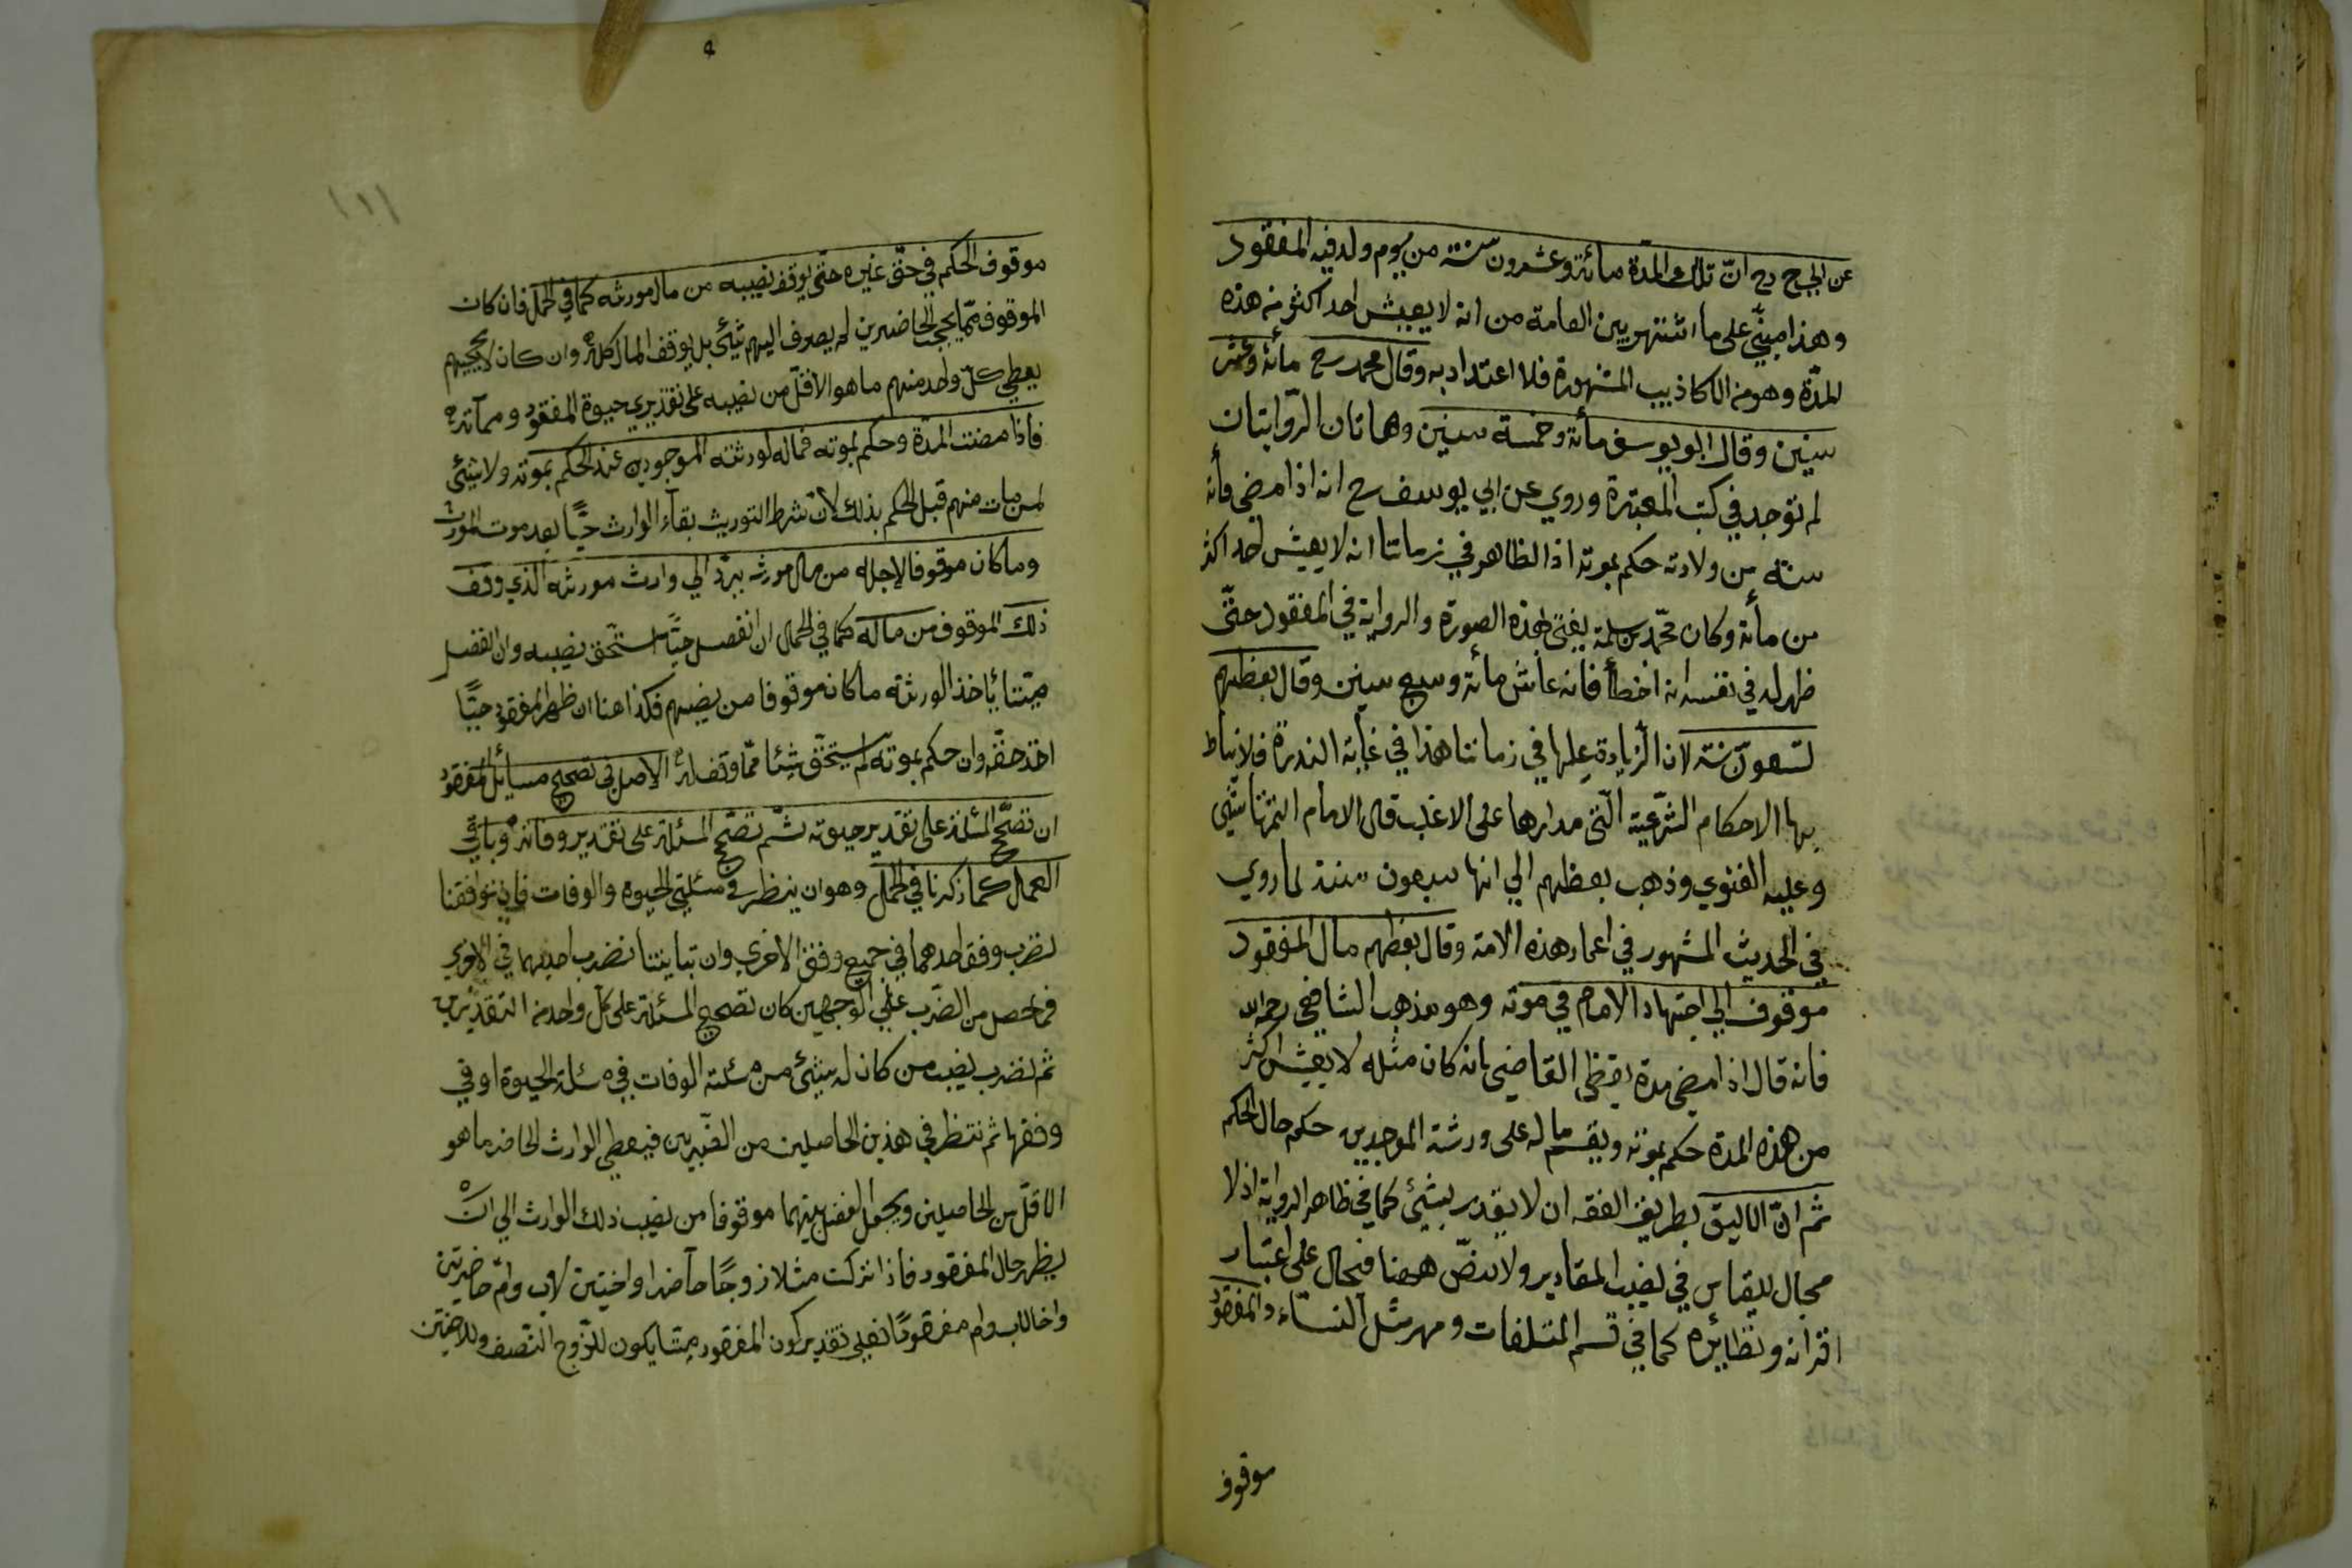 عن ابي ح رح انّ تلك المدة مائة وعشرون سنة من يوم ولد فيه المفقود
وهذا مبنيّ على ما اشتهر بين العامة من انه لا يعيش احد اكثر من هذه
المدّة وهو من الاكاذيب المشهورة فلا اعتداد به وقال محمد رح مائة وعشر
سنين وقال ابو يوسف مأة وخمسة سنين وهاتان الرّوايتان
لم توجد في كتب المعتبرة وروي عن ابي يوسف رح انه اذا مضى مأة
سنة من ولادته حكم بموته اذ الظاهر في زماننا انه لا يعيش احد اكثر
من مأة وكان محمّد بن سلمة يفتى بهذه الصورة والرواية في المفقود حتّى
ظهر له في نفسه انه اخطأ فانه عاش مائة وسبع سنين وقال بعظهم
تسعون سنة لان الزيادة عليها في زماننا هذا في غاية الندرة فلا يناط
بها الاحكام الشرّعية الّتي مدارها على الاغلب قال الامام التمرتاشي
وعليه الفتوي وذهب بعظهم الي انها سبعون سنة لما روي
في الحديث المشهور في اعمار هذه الامة وقال بعظهم مال المفقود
موقوف الي اجتهاد الامام في موته وهو مذهب الشافعي رحمه الله
فانه قال اذا مضى مدة يقظى القاضي بانه كان مثله لا يعيش اكثر
من هذه المدة حكم بموته ويقسم ماله على ورثة الموجدين حكم حال الحكم
ثم انّ الاليق بطريق الفقه ان لا يقدر بشيئ كما في ظاهر الرواية اذ لا
مجال للقياس في نصيب المقادير ولا نصّ ههنا فيحال على اعتبار
اقرانه ونظايره كما في قسم المتلفات ومهر مثل النساء والمفقود
موقوف
١١١
موقوف الحكم في حقّ غيره حتّى يوقف نصيبه من مال مورثه كما في الحمل فان كان
الموقوف ممّا يحجب الحاضرين لم يصرف اليهم شيئ بل يوقف المال كله وان كان لا يحجبهم
يعطي كلّ واحد منهم ما هو الاقلّ من نصيبه على تقديري حيوة المفقود ومماته
فاذا مضت المدّة وحكم بموته فماله لورثته الموجودين عند الحكم بموته ولا شيئ
لمن مات منهم قبل الحكم بذلك لانّ شرط التوريث بقاء الوارث حيًّا بعد موت المورث
وما كان موقوفا لاجله من مال مورثه يردّ الي وارث مورثه الذي وقف
ذلك الموقوف من ماله كما في الحمال ان انفصل حيًّا استحّق نصيبه وان انفصل
ميّتا يأخذ الورثة ما كان موقوفا من نصيبهم فكذا هنا ان ظهر المفقود حيّا
اخذ حقّه وان حكم بموته لم يستحّق شيئا ممّا وقف له الاصل في تصحيح مسايل المفقود
ان تصحّح المسئلة على تقدير حيوته ثمّ تصحّح المسئلة على تقدير وفاته وباقي
العمال كما ذكرنا في الحمل وهو ان ينظر في مسئلتي الحيوة والوفات فان توافقتا
نضرب وفق احدهما في جميع وفق الاخري وان تباينتا نضرب احديهما في الاخري
فما حصل من الضّرب على الوجهين كان تصحيح المسئلة على كل واحد من التقديرين
ثم نضرب نصيب من كان له شيئ من مسئلة الوفات في مسئلة الحيوة او في
وفقها ثم ننظر في هذين الحاصلين من الضّربين فيعطي الوارث الحاضر ما هو
الاقلّ من الحاصلين ويجعل الفضل بينهما موقوفا من نصيب ذلك الوارث الي ان
يظهر حال المفقود فاذا تركت مثلا زوجًا حاضرا واختين لاب وام حاضرتين
واخا لاب وام مفقودًا فعلي تقدير كون المفقود ميّتا يكون للزّوج النّصف وللاختين